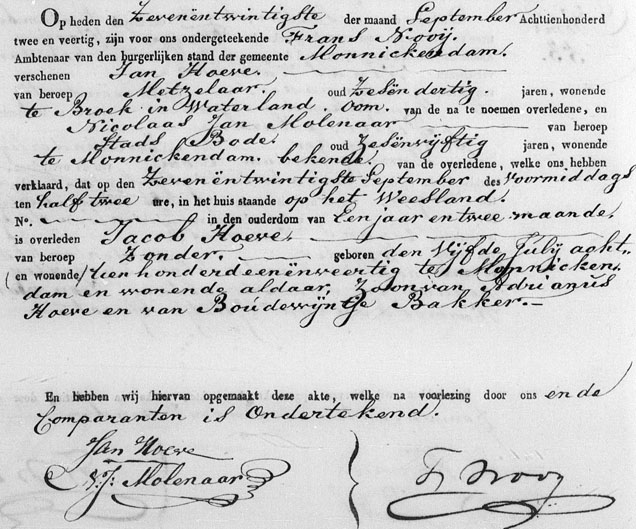 Op heden den Zevenëntwintigste der maand September Achttienhonderd
twee en veertig, zijn voor ons ondergeteekende Frans Nooij.
Ambtenaar van den burgerlijken stand der gemeente Monnickendam.
verschenen Jan Hoeve.
van beroep Metzelaar. oud Zesëndertig. jaren, wonende
te Broek in Waterland. Oom. van de na te noemen overledene, en
Nicolaas Jan Molenaar van beroep
Stads Bode. oud Zesënvijftig jaren, wonende
te Monnickendam. bekende. van de overledene, welke ons hebben
verklaard, dat op den Zevenëntwintigste September des Voormiddags
ten half twee ure, in het huis staande op het Weesland.
No. in den ouderdom van Een jaar en twee maande.
is overleden Jacob Hoeve.
van beroep Zonder. geboren den Vijfde July acht„
en wonende tien honderd eenënveertig te Monnicken„
dam en wonende aldaar, Zoon van Adrianus
Hoeve en van Boudewijntje Bakker.
En hebben wij hiervan opgemaakt deze akte, welke na voorlezing door ons en de
Comparanten is Ondertekend.
Jan Hoeve
N. J. Molenaar
F Nooij